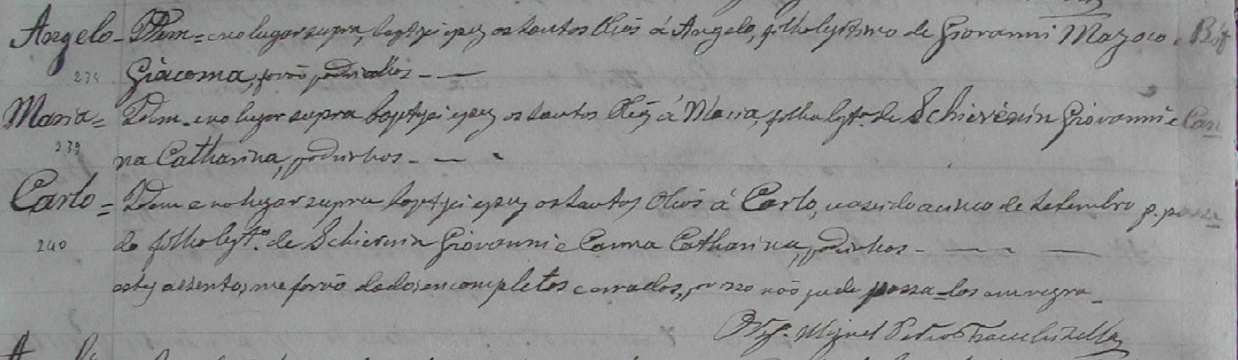 Angelo = Idem = e no lugar supra, baptizei e puz os santos Oleos á Angelo, filho legitimo de Giovanni Mazoco e
238 Giacoma, forão padrinhos
Maria = Idem e no lugar supra baptizei e puz os santos Oleos á Maria, filha legt.ª de Schiervenin Giovanni e Can
239 na Catharina, padrinhos
Carlo = Idem e no lugar supra baptizei e puz os santos Oleos á Carlo, nascido a cinco de Setembro p. passa
240 do filho legt.º de Schiervenin Giovanni e Canna Catharina, padrinhos
estes assentos, me forão dados encompletos e errados, por isso não pude passa-los em regra
Miguel Pedro